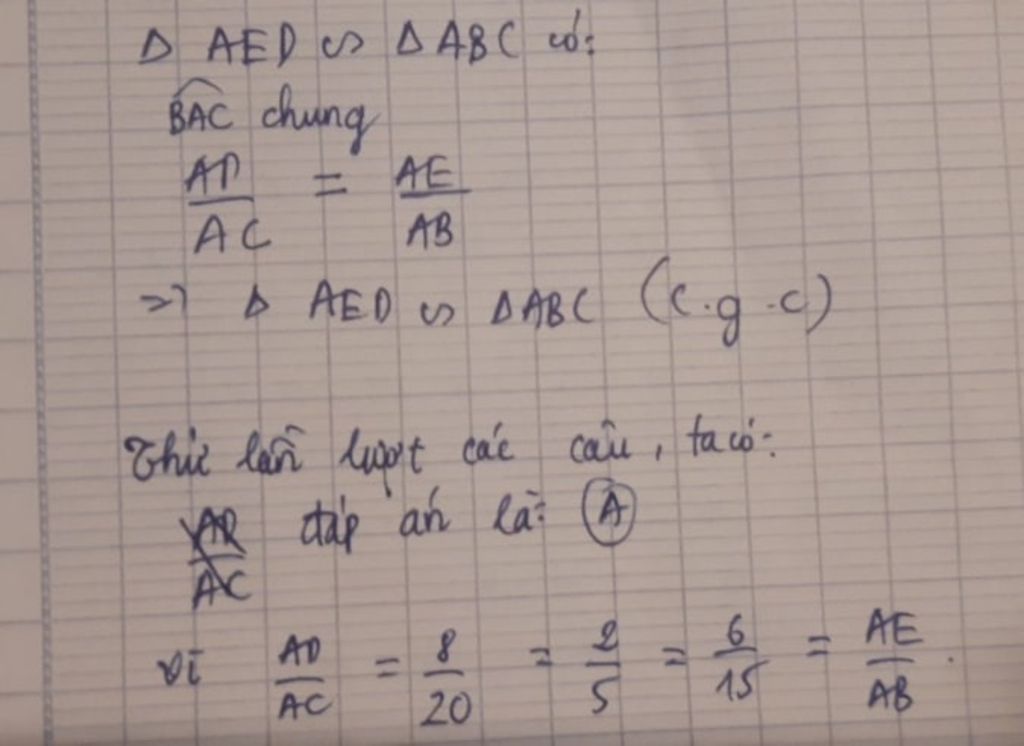 Δ AED ∽ Δ ABC có:
$\widehat{BAC}$ chung
$\frac{AD}{AC} = \frac{AE}{AB}$
=> Δ AED ∽ Δ ABC (c.g.c)
Thử lần lượt các câu, ta có:
đáp án là: A
vì $\frac{AD}{AC} = \frac{8}{20} = \frac{2}{5} = \frac{6}{15} = \frac{AE}{AB}$.